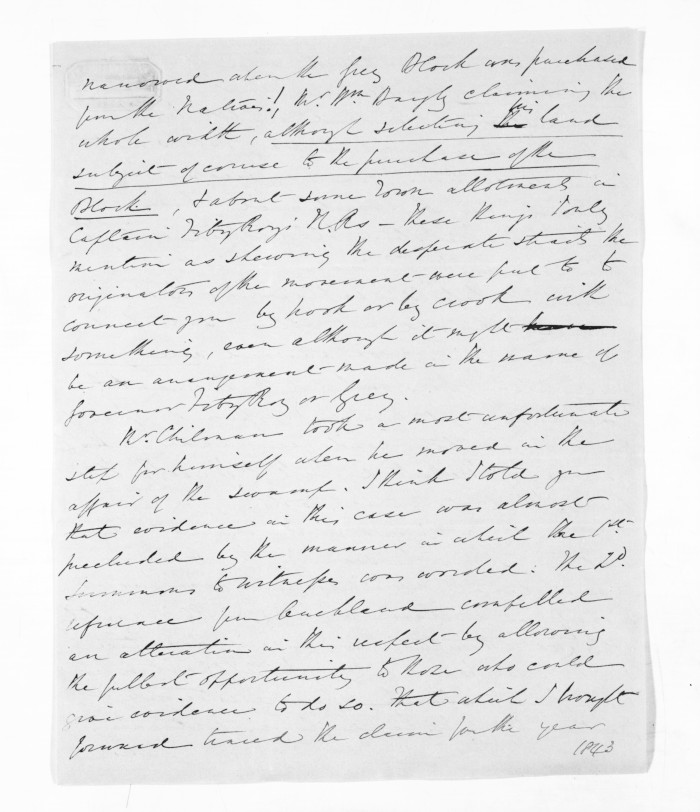 narrowed when the Grey Block was purchased
from the Natives!, Mr. Wm. Bayly claiming the
whole width, although selecting his land
subject of course to the purchase of the
Block, & about some Town allotments in
Captain FitzRoy's N.Ps — these things I only
mention as shewing the desperate straits the
originators of the movement were put to to
connect you by hook or by crook with
something, even although it might
be an arrangement made in the name of
Governor FitzRoy or Grey.
Mr. Chilman took a most unfortunate
step for himself when he moved in the
affair of the swamp. I think I told you
that evidence in this case was almost
precluded by the manner in which the 1st.
Summons to witnesses was worded: The 2d.
reference from Auckland compelled
an alteration in this respect by allowing
the fullest opportunity to those who could
give evidence to do so. That which I brought
forward traced the claim for the year
1843